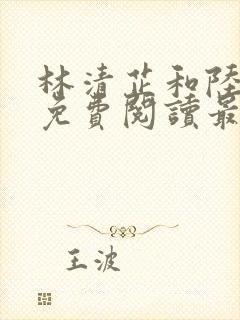 林清芷和陸
免費閱讀最
王波